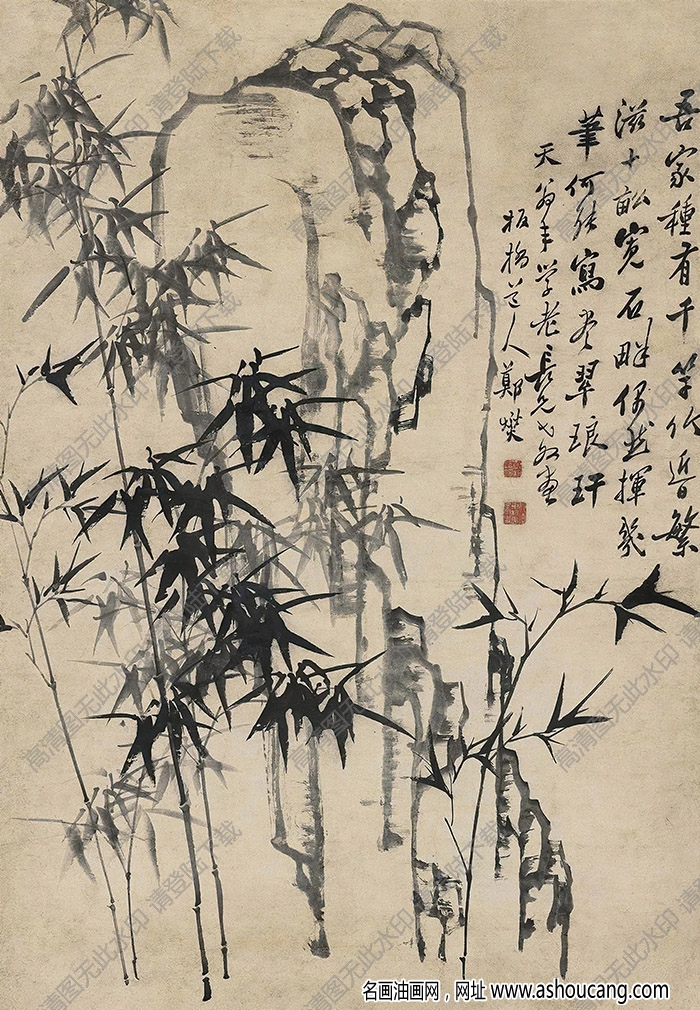 吾家種有千竿竹近繁
滋十畝寬石畔偶然揮幾
筆何能寫尽翠琅玕
天翁年学老長兄教画
板橋道人鄭燮
高清图无此水印 请登陆下载
名画油画网，网址 www.ashoucang.com